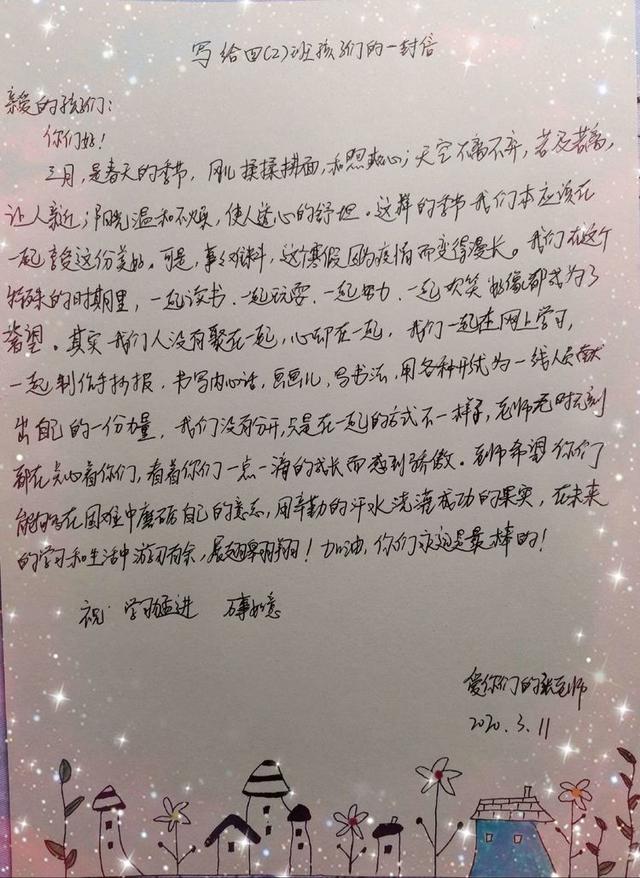 写给四(2)班孩子们的一封信
亲爱的孩子们:
你们好!
三月,是春天的季节,风儿揉揉拂面,和煦我心;天空不离不弃,若及若离,
让人亲近;阳光温和不燥,使人透心的舒坦。这样的季节我们本应该在
一起享受这份美好。可是,事与愿料,这个寒假因为疫情而变得漫长。我们在这个
特殊的时期里,一起读书、一起玩耍、一起努力、一起欢笑好像都成为了
奢望。其实我们人没有聚在一起,心却在一起,我们一起在网上学习,
一起制作手抄报,书写内心话,画画儿,写书法,用各种形式为一线人员献
出自己的一份力量,我们没有分开,只是在一起的方式不一样子,老师无时不刻
都在关心着你们,看着你们一点一滴的成长而感到骄傲。老师希望你们
能够在困难中磨砺自己的意志,用辛勤的汗水浇灌成功的果实,在未来
的学习和生活中游刃有余,展翅翱翔!加油,你们永远是最棒的!
祝:学习猛进 万事如意
爱你们的张老师
2020.3.11